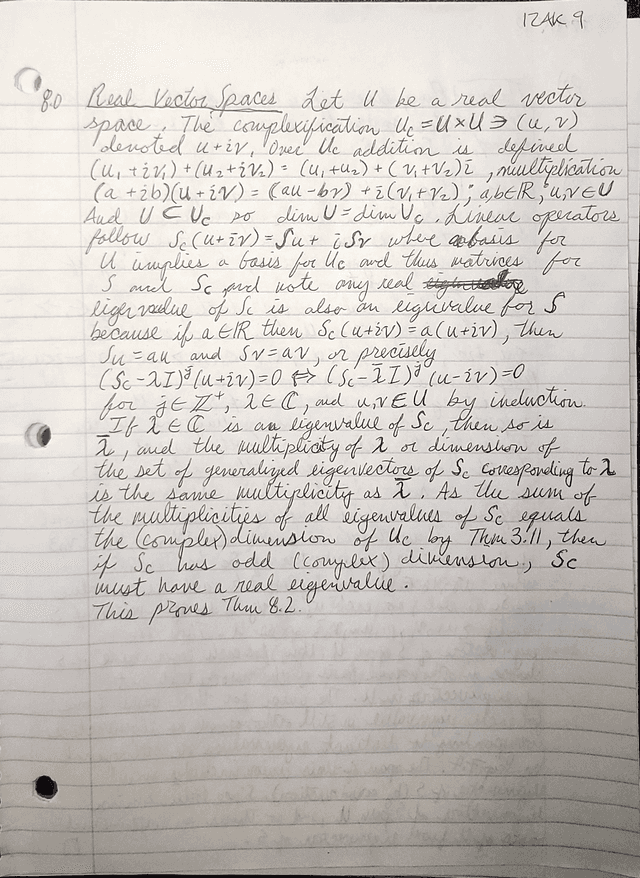 IZAK 9
8.0 Real Vector Spaces Let U be a real vector
space. The complexification U_c = U × U ∋ (u, v)
denoted u + iv, Over U_c addition is defined
(u₁ + iv₁) + (u₂ + iv₂) = (u₁ + u₂) + (v₁ + v₂)i , multiplication
(a + ib)(u + iv) = (au - bv) + i(v₁ + v₂) ; a,b ∈ ℝ, u,v ∈ U
And U ⊂ U_c so dim U = dim U_c. Linear operators
follow S_c(u + iv) = Su + iSv where a basis for
U implies a basis for U_c and thus matrices for
S and S_c, and note any real
eigenvalue of S_c is also an eigenvalue for S
because if a ∈ ℝ then S_c(u + iv) = a(u + iv), then
Su = au and Sv = av, or precisely
(S_c - λI)^j (u + iv) = 0 ⇔ (S_c - λ̄I)^j (u - iv) = 0
for j ∈ ℤ⁺, λ ∈ ℂ, and u,v ∈ U by induction.
If λ ∈ ℂ is an eigenvalue of S_c, then so is
λ̄, and the multiplicity of λ or dimension of
the set of generalized eigenvectors of S_c corresponding to λ
is the same multiplicity as λ̄. As the sum of
the multiplicities of all eigenvalues of S_c equals
the (complex) dimension of U_c by Thm 3.11, then
if S_c has odd (complex) dimension, S_c
must have a real eigenvalue.
This proves Thm 8.2.